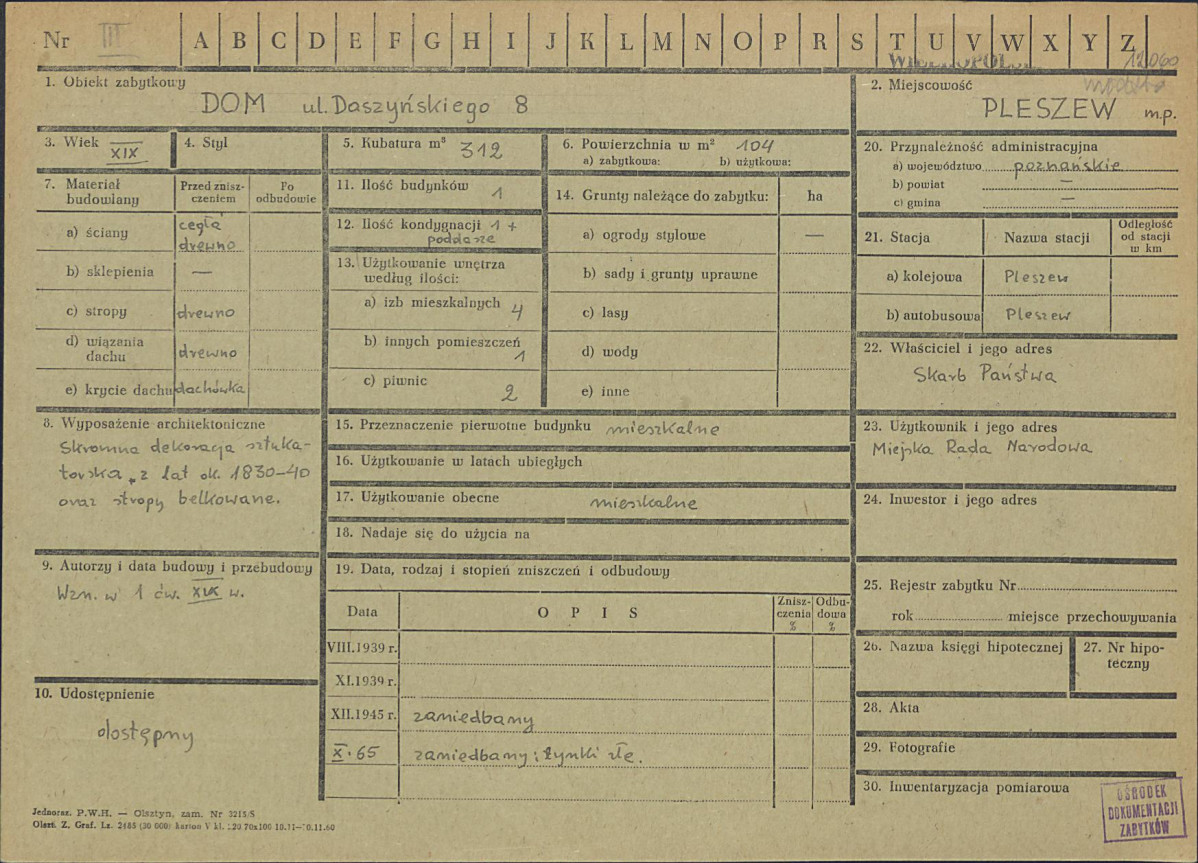 Nr III A B C D E F G H I J K L M N O P R S T U V W X Y Z
12060
1. Obiekt zabytkowy
DOM ul. Daszyńskiego 8
2. Miejscowość
PLESZEW m.p.
3. Wiek XIX
4. Styl
5. Kubatura m³ 312
6. Powierzchnia w m² 104
a) zabytkowa: b) użytkowa:
7. Materiał budowlany
Przed zniszczeniem
Po odbudowie
a) ściany cegła drewno
b) sklepienia —
c) stropy drewno
d) wiązania dachu drewno
e) krycie dachu dachówka
8. Wyposażenie architektoniczne
Skromna dekoracja sztuka-
torska z lat ok. 1830–40
oraz stropy belkowane.
9. Autorzy i data budowy i przebudowy
Wzn. w 1 ćw. XIX w.
10. Udostępnienie
dostępny
11. Ilość budynków 1
12. Ilość kondygnacji 1 +
poddasze
13. Użytkowanie wnętrza
według ilości:
a) izb mieszkalnych 4
b) innych pomieszczeń 1
c) piwnic 2
14. Grunty należące do zabytku: ha
a) ogrody stylowe —
b) sady i grunty uprawne
c) lasy
d) wody
e) inne
15. Przeznaczenie pierwotne budynku mieszkalne
16. Użytkowanie w latach ubiegłych
17. Użytkowanie obecne mieszkalne
18. Nadaje się do użycia na
19. Data, rodzaj i stopień zniszczeń i odbudowy
Data
OPIS
Znisz-
czenia
%
Odbu-
dowa
%
VIII.1939 r.
XI.1939 r.
XII.1945 r. zaniedbany
X.65 zaniedbany; tynki złe.
20. Przynależność administracyjna
a) województwo poznańskie
b) powiat —
c) gmina —
21. Stacja
Nazwa stacji
Odległość
od stacji
w km
a) kolejowa Pleszew
b) autobusowa Pleszew
22. Właściciel i jego adres
Skarb Państwa
23. Użytkownik i jego adres
Miejska Rada Narodowa
24. Inwestor i jego adres
25. Rejestr zabytku Nr
rok miejsce przechowywania
26. Nazwa księgi hipotecznej
27. Nr hipo-
teczny
28. Akta
29. Fotografie
30. Inwentaryzacja pomiarowa
OŚRODEK
DOKUMENTACJI
ZABYTKÓW
Jednoraz. P.W.H. — Olsztyn, zam. Nr 3215/S